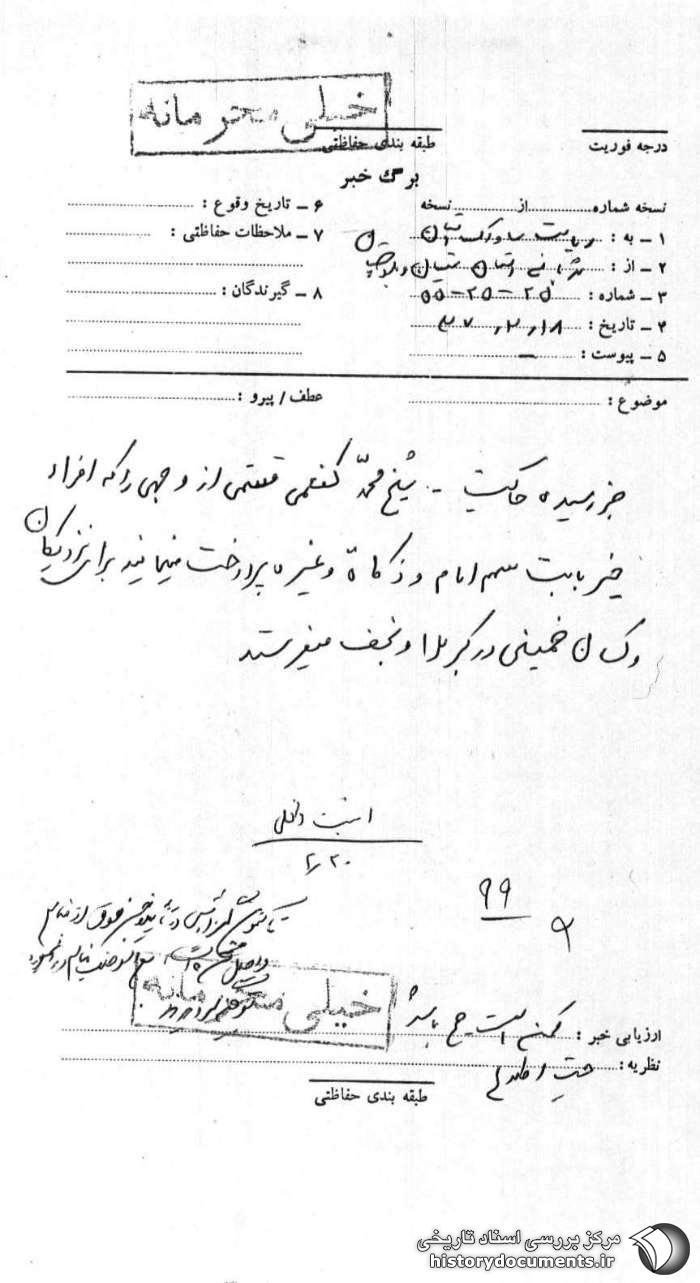 خیلی محرمانه
درجه فوریت
طبقه بندی حفاظتی
برگ خبر
نسخه شماره............از............نسخه
۱ ـ به : ریاست ساواک استان
۲ ـ از : استان سیستان و بلوچستان
۳ ـ شماره : ۲۵ - ۲۵ - ۵۵
۴ ـ تاریخ : ۴۷،۲،۱۸
۵ ـ پیوست : ـ
۶ ـ تاریخ وقوع :
۷ ـ ملاحظات حفاظتی :
۸ ـ گیرندگان :
موضوع :
عطف / پیرو :
خبر رسیده حاکیست - شیخ محمد کفعمی قسمتی از وجهی را که افراد
خیر بابت سهم امام و ذکاة و غیره پرداخت مینمایند برای نزدیکان
و کسان خمینی در کربلا و نجف میفرستد
امنیت داخلی
۲٫۲۰
۹۹
۹
تاکنون گزارشی در تأیید خبر فوق از
خیلی محرمانه
ارزیابی خبر : ممکن است صحیح باشد
نظریه : جهت اطلاع
طبقه بندی حفاظتی
مرکز بررسی اسناد تاریخی
historydocuments.ir